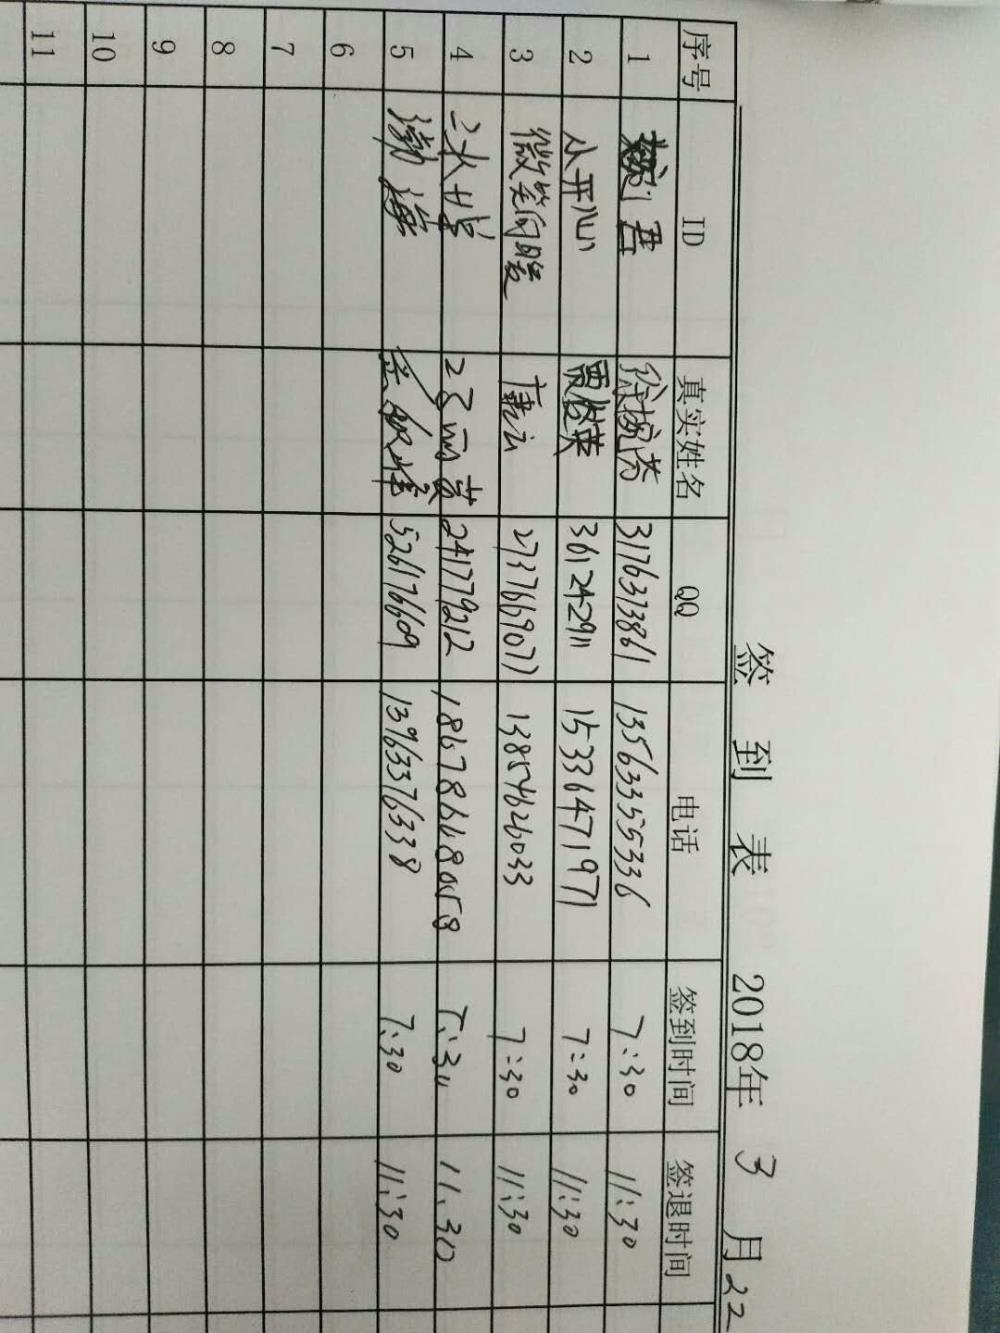 签到表 2018年 3 月 22
序号 ID 真实姓名 QQ 电话 签到时间 签退时间
1 君 317631386 13563355336 7:30 11:30
2 小开心 贾俊英 361242911 15336471971 7:30 11:30
3 微笑向暖 唐云 2737669077 13854626033 7:30 11:30
4 241779212 7:30 11:30
5 渤海 526176609 13963376338 7:30 11:30
6
7
8
9
10
11